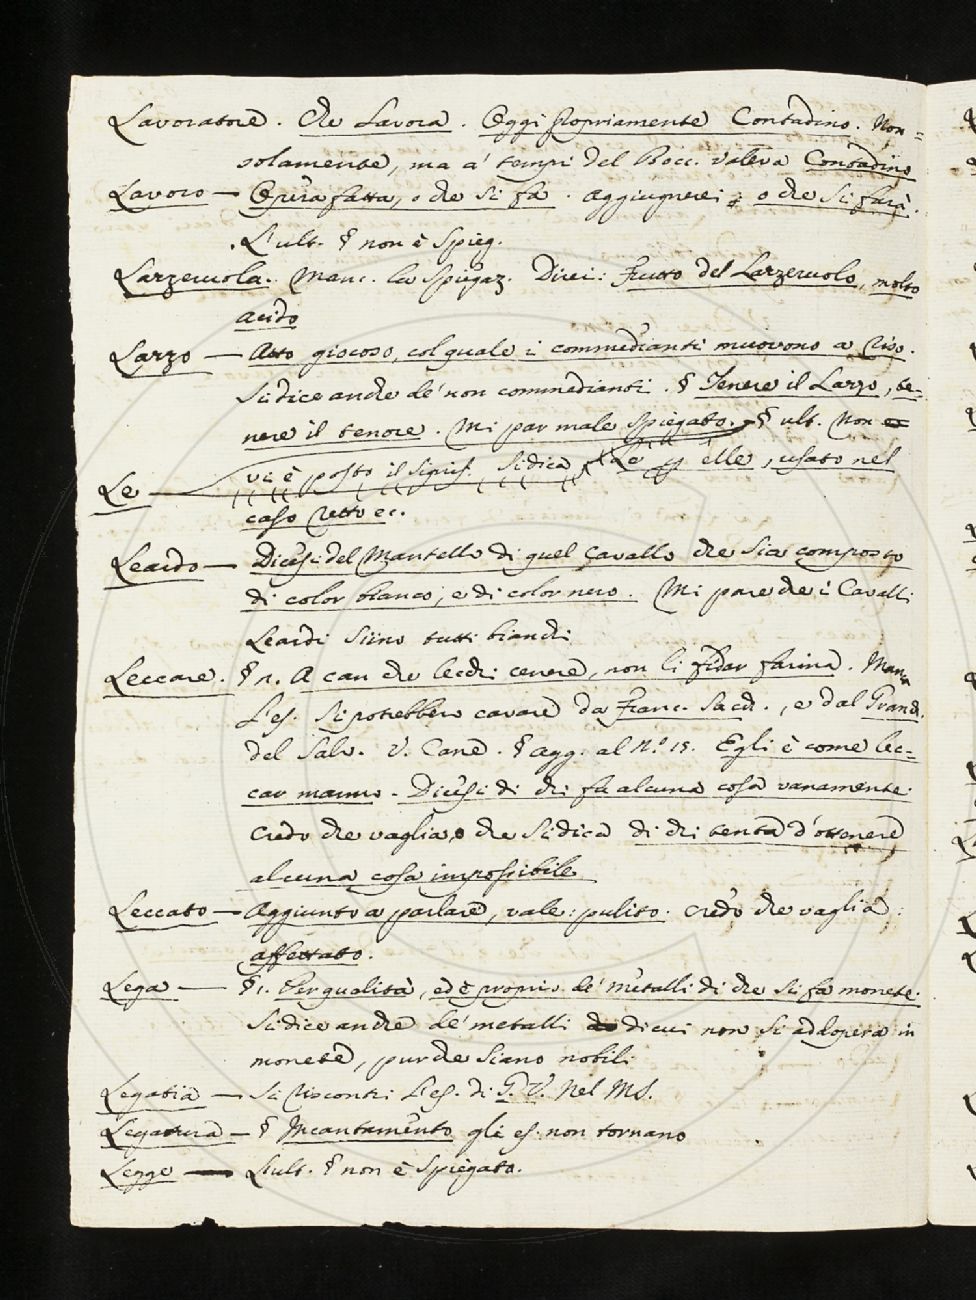 Lavoratore. Che Lavora. Oggi propriamente Contadino. Non=
solamente, ma a' tempi del Bocc. valeva Contadino
Lavoro — Opera fatta, o che si fa. aggiugnerei: o che si farà.
L'ult. § non è Spieg.
Lazzeruola. Manc. la Spiegaz. Direi: frutto del Lazzeruolo, molto
acido
Lazzo — Atto giocoso, col quale i commedianti muovono a riso.
Si dice anche de' non commedianti. § Tenere il Lazzo, te=
nere il tenore. Mi par male spiegato. § ult. Non
vi è posto il signif. Si dica
Le — Le per elle, usato nel
caso retto ec.
Leardo — Dicesi del Mantello di quel Cavallo che sia composto
di color bianco, e di color nero. Mi pare che i Cavalli
Leardi siino tutti bianchi
Leccare. § 1. A can che lecchi cenere, non li fidar farina. Manca
L'es. Si potrebbero cavare da Franc. Sacch., e dal Granch.
del Salv. V. Cane. § agg. al N.º 15. Egli è come lec=
car marmo. Dicesi di chi fa alcuna cosa vanamente.
Credo che vaglia, o che si dica di chi tenta d'ottenere
alcuna cosa impossibile
Leccato — Aggiunto a parlare, vale: pulito. credo che vaglia:
affettato.
Lega — § 1. Per qualità, ed è proprio de' metalli di che si fa monete.
Si dice anche de' metalli di cui non si addopera in
monete, purche siano nobili
Legatia — Si riscontri L'es. di G. V. nel MS.
Legatura — § Incantamento gli es. non tornano
Legge — L'ult. § non è Spiegato.